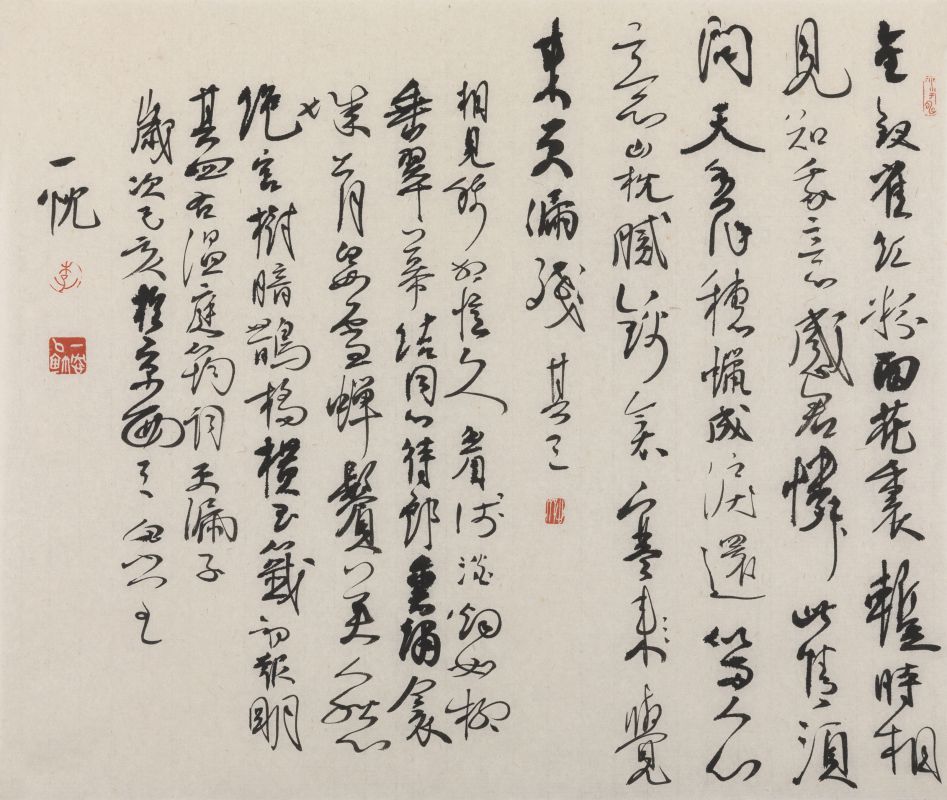 金釵雀紅粉面花裏暫時相
見知我意感君憐此情須
問天香作穗蠟成淚還似兩人心
意山枕膩錦衾寒来覺
来更漏殘其三
相見稀相憶久眉淺淡烟如柳
垂翠幕結同心待郎熏繡衾
城上月白如雪蟬鬢美人愁
絕宮樹暗鵲橋橫玉籤初報明
其四右溫庭筠詞更漏子
歲次己亥於京西
一忱
李